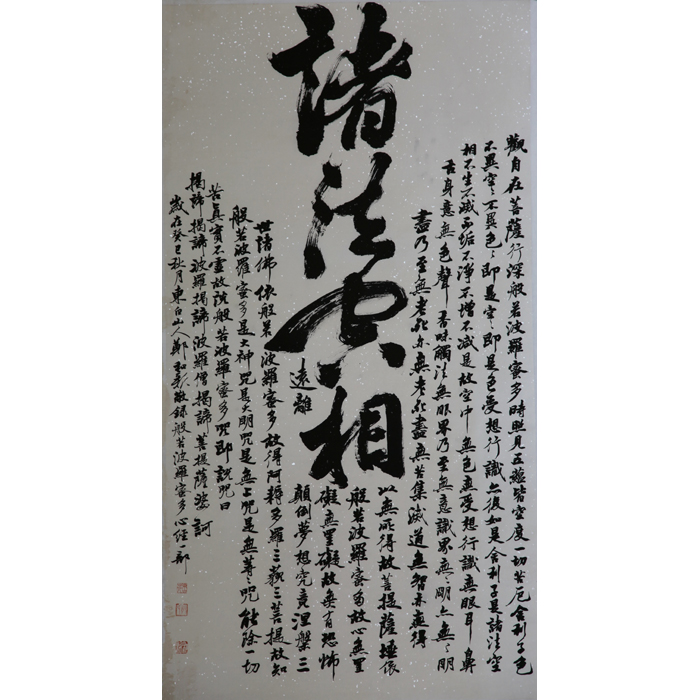 諸法空相
觀自在菩薩行深般若波羅蜜多時照見五蘊皆空度一切苦厄舍利子色
不異空々不異色々即是空々即是色受想行識亦復如是舍利子是諸法空
相不生不滅不垢不淨不增不減是故空中無色無受想行識無眼耳鼻
舌身意無色聲香味觸法無眼界乃至無意識界無々明亦無々明
盡乃至無老死亦無老死盡無苦集滅道無智亦無得
以無所得故菩提薩埵依
般若波羅蜜多故心無罣
礙無罣礙故無有恐怖
遠離
顛倒夢想究竟涅槃三
世諸佛依般若波羅蜜多故得阿耨多羅三藐三菩提故知
般若波羅蜜多是大神咒是大明咒是無上咒是無等々咒能除一切
苦真實不虛故說般若波羅蜜多咒即說咒曰
揭諦揭諦波羅揭諦波羅僧揭諦菩提薩婆訶
歲在癸巳秋月東白山人鄭和敬錄般若波羅蜜多心經一部